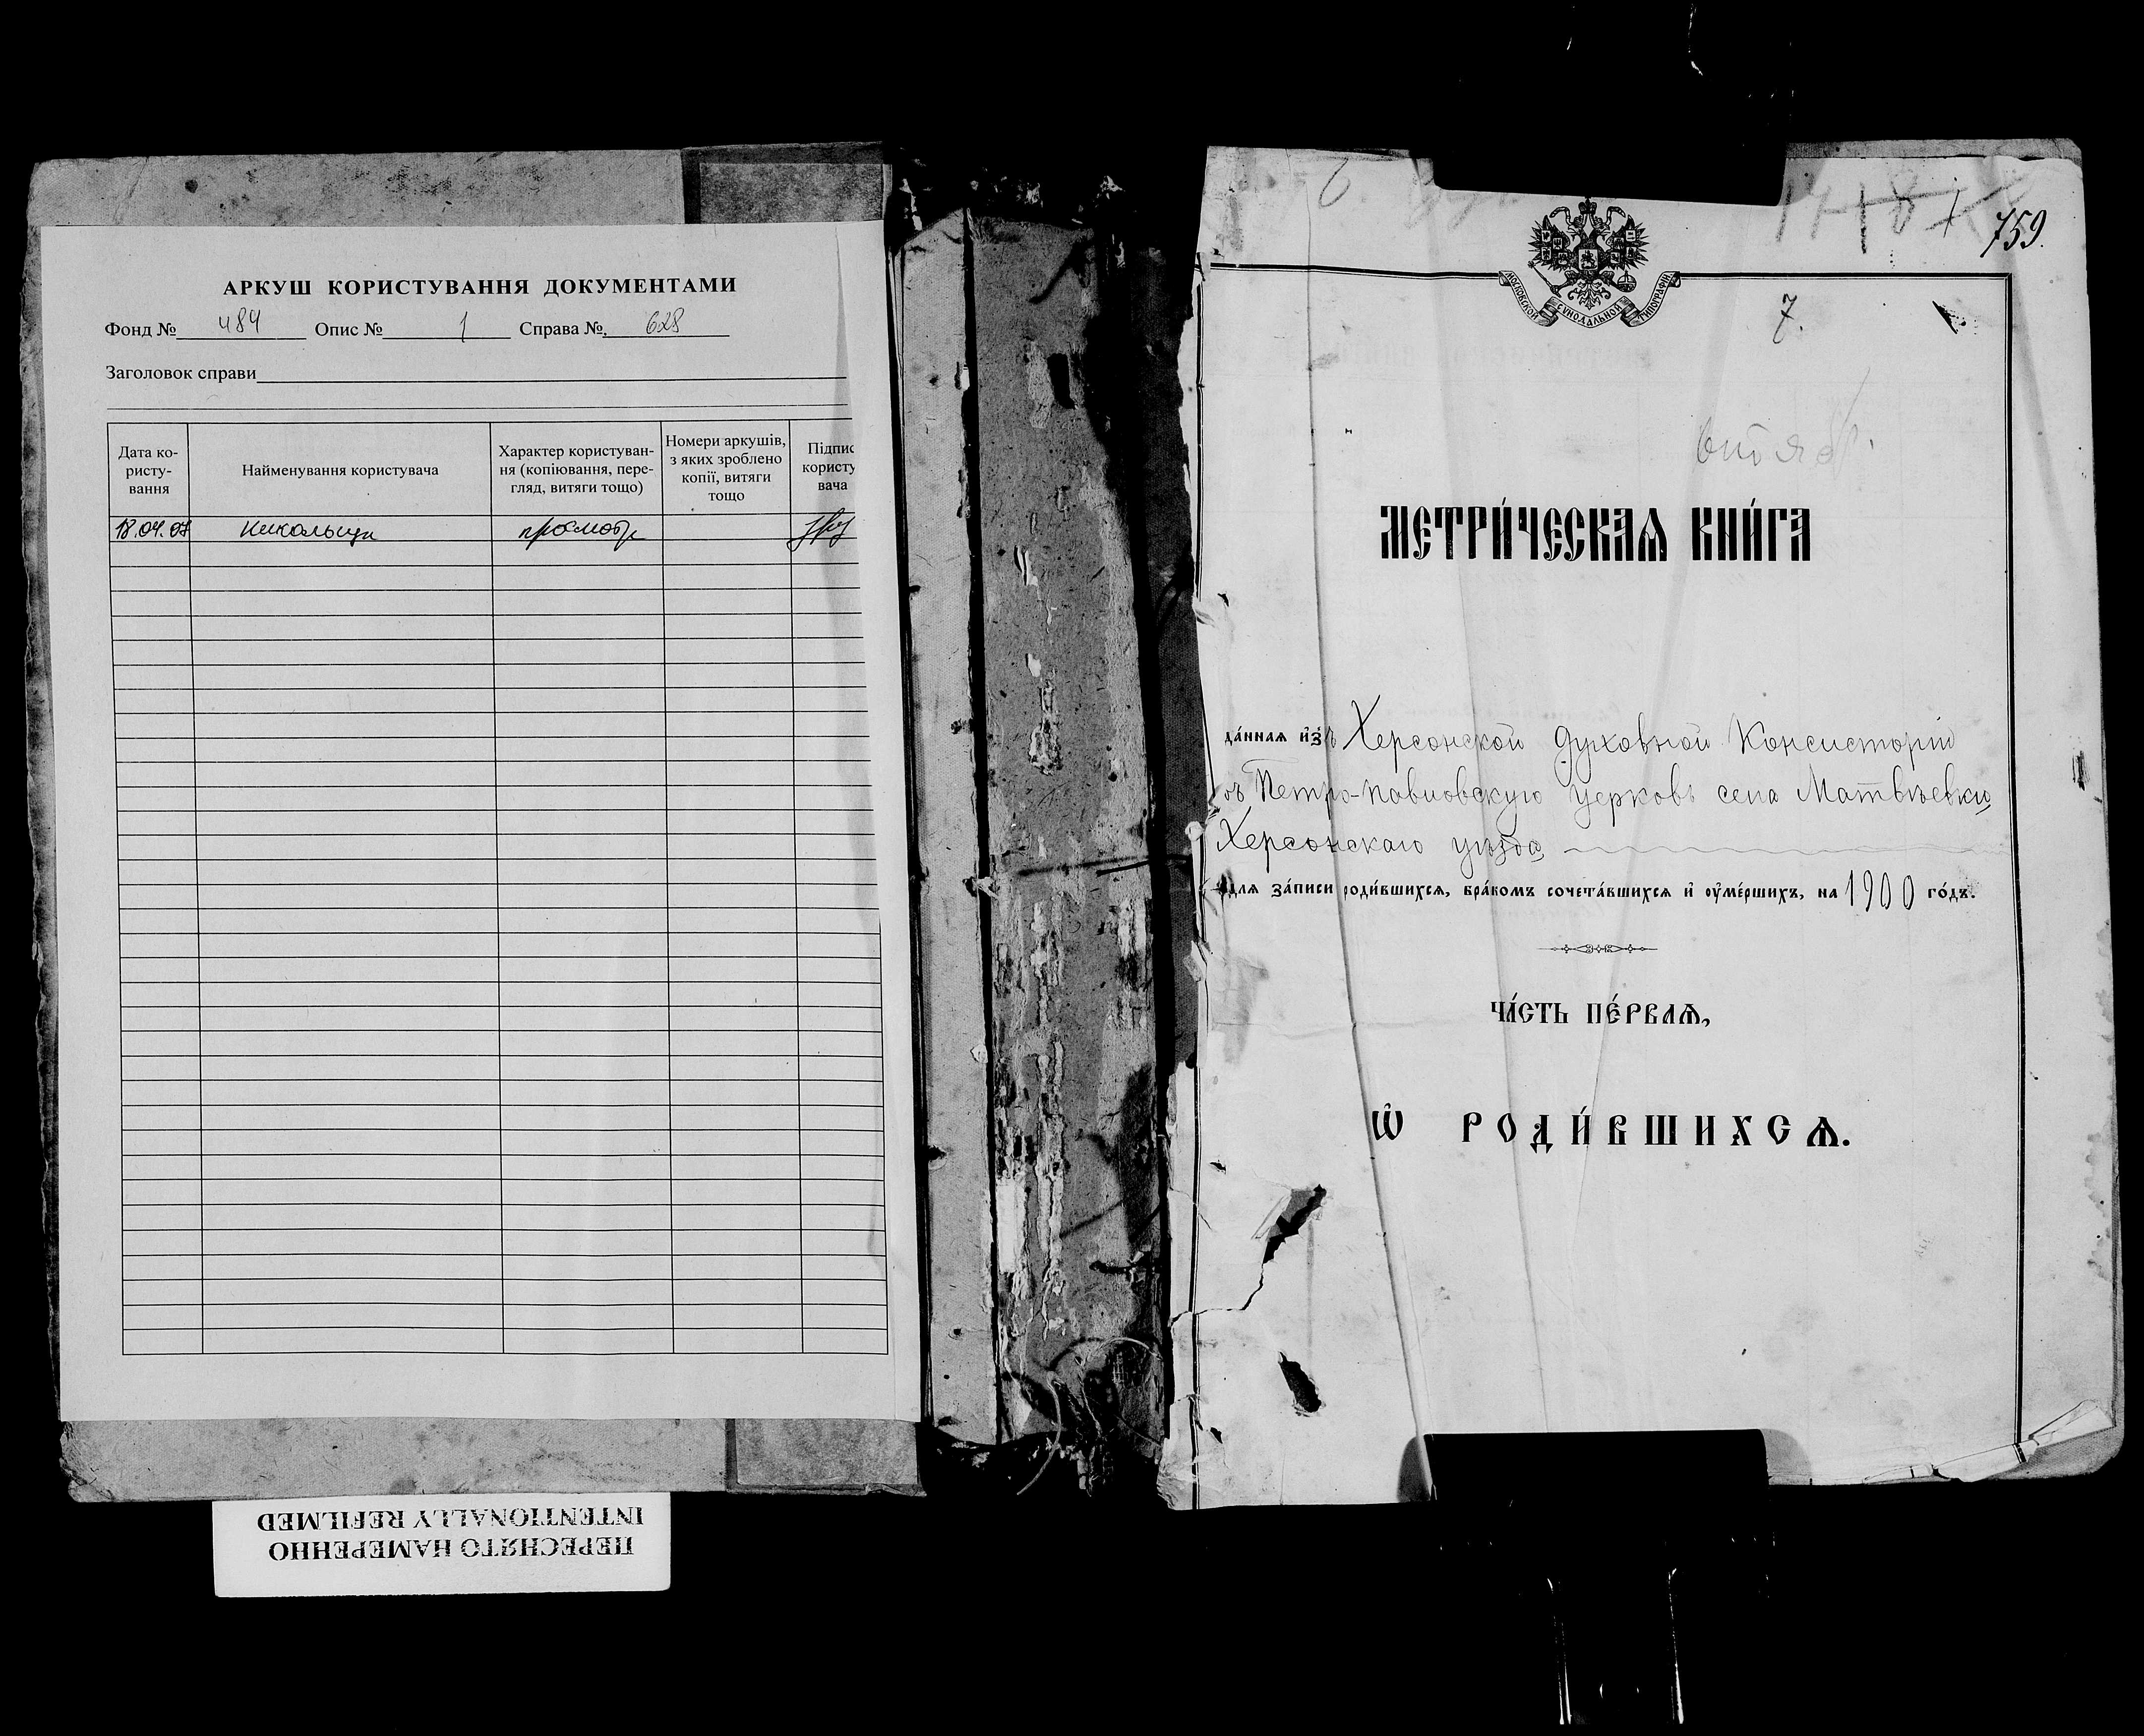 АРКУШ КОРИСТУВАННЯ ДОКУМЕНТАМИ
Фонд № 484 Опис № 1 Справа № 628
Заголовок справи
Дата ко-
ристу-
вання
Найменування користувача
Характер користуван-
ня (копіювання, пере-
гляд, витяги тощо)
Номери аркушів,
з яких зроблено
копії, витяги
тощо
Підпис
користу
вача
18.04.07 просмотр
ПЕРЕСНЯТО НАМЕРЕННО
INTENTIONALLY REFILMED
759.
МОСКОВСКОЙ СѴНОДАЛЬНОЙ ТИПОГРАФІИ
7.
МЕТРИ́ЧЕСКАѦ КНИ́ГА
да́нная и҆зъ Херсонской Духовной Консисторіи
въ Петро-Павловскую церковь села Матвѣевки
Херсонскаго уѣзда
для за́писи роди́вшихсѧ, бра́комъ сочета́вшихсѧ и҆ оу҆ме́ршихъ, на 1900 го́дъ.
ЧА́СТЬ ПЕ́РВАѦ,
Ѡ҆ РОДИ́ВШИХСѦ.